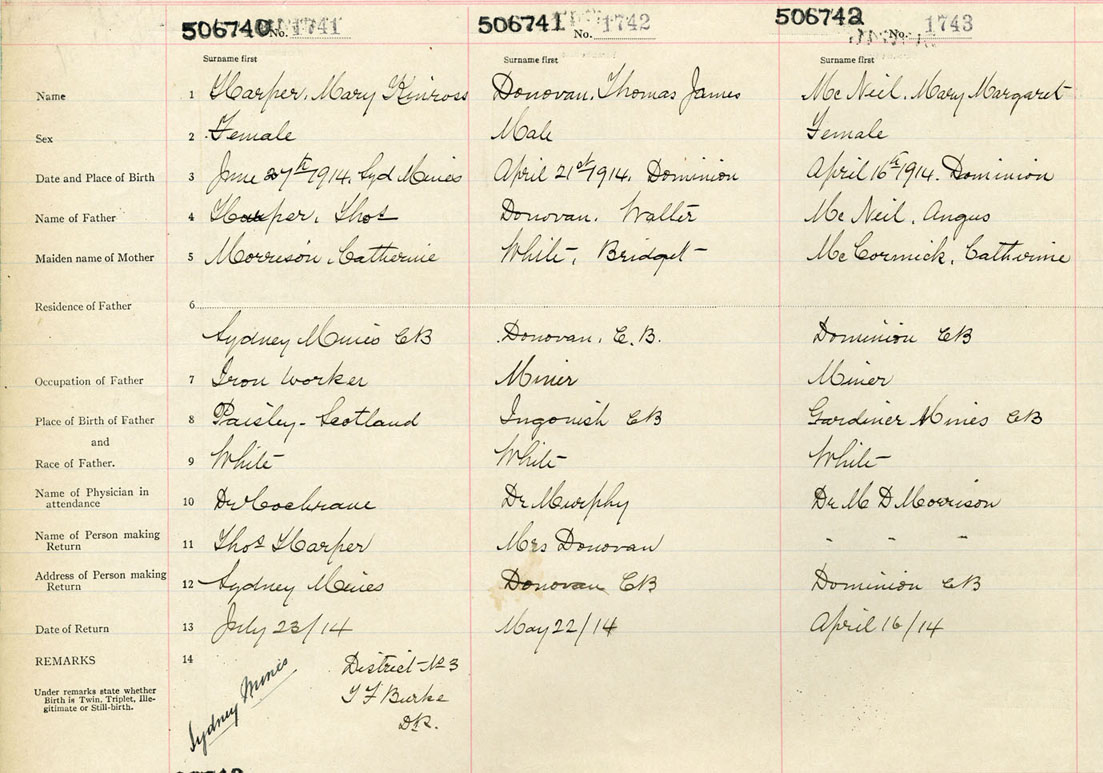 506740 No. 1741 506741 No. 1742 506742 No. 1743
Surname first Surname first Surname first
Name 1 Harper, Mary Kinross Donovan, Thomas James McNeil, Mary Margaret
Sex 2 Female Male Female
Date and Place of Birth 3 June 27th 1914. Syd Mines April 21st 1914. Dominion April 16th 1914. Dominion
Name of Father 4 Harper, Thos Donovan, Walter McNeil, Angus
Maiden name of Mother 5 Morrison, Catherine White, Bridget McCormick, Catherine
Residence of Father 6
Sydney Mines CB Donovan, C.B. Dominion CB
Occupation of Father 7 Iron worker Miner Miner
Place of Birth of Father 8 Paisley - Scotland Ingonish CB Gardiner Mines CB
and
Race of Father. 9 White White White
Name of Physician in
attendance 10 Dr Cochrane Dr Murphy Dr M D Morrison
Name of Person making
Return 11 Thos Harper Mrs Donovan " " "
Address of Person making
Return 12 Sydney Mines Donovan CB Dominion CB
Date of Return 13 July 23/14 May 22/14 April 16/14
REMARKS 14 District No 3
Under remarks state whether
Birth is Twin, Triplet, Ille-
gitimate or Still-birth.
Sydney Mines
T F Burke
D.R.